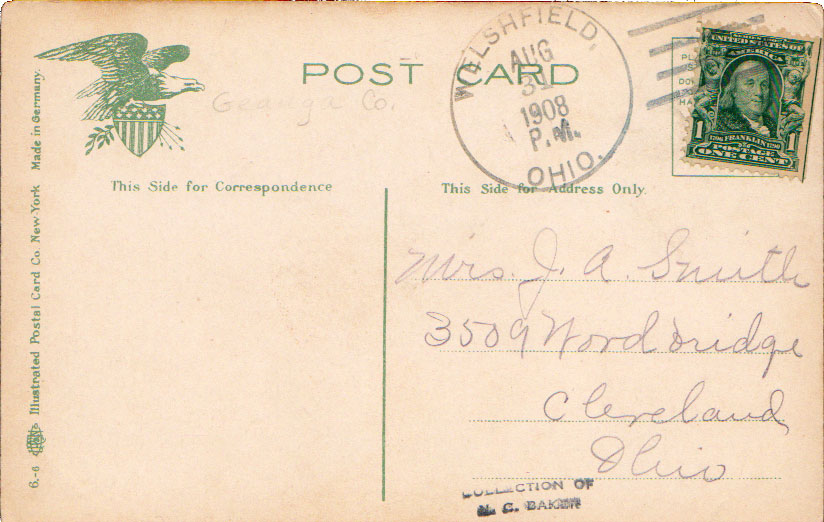 POST CARD
Geauga Co.
WELSHFIELD,
AUG
31
1908
P.M.
OHIO.
UNITED STATES OF
AMERICA
1 1
1706 FRANKLIN 1790
POSTAGE
ONE CENT
This Side for Correspondence
This Side for Address Only.
Mrs. J. A. Smith
3509 Woodbridge
Cleveland
Ohio
COLLECTION OF
BAKER
6.-6 Illustrated Postal Card Co. New-York Made in Germany.